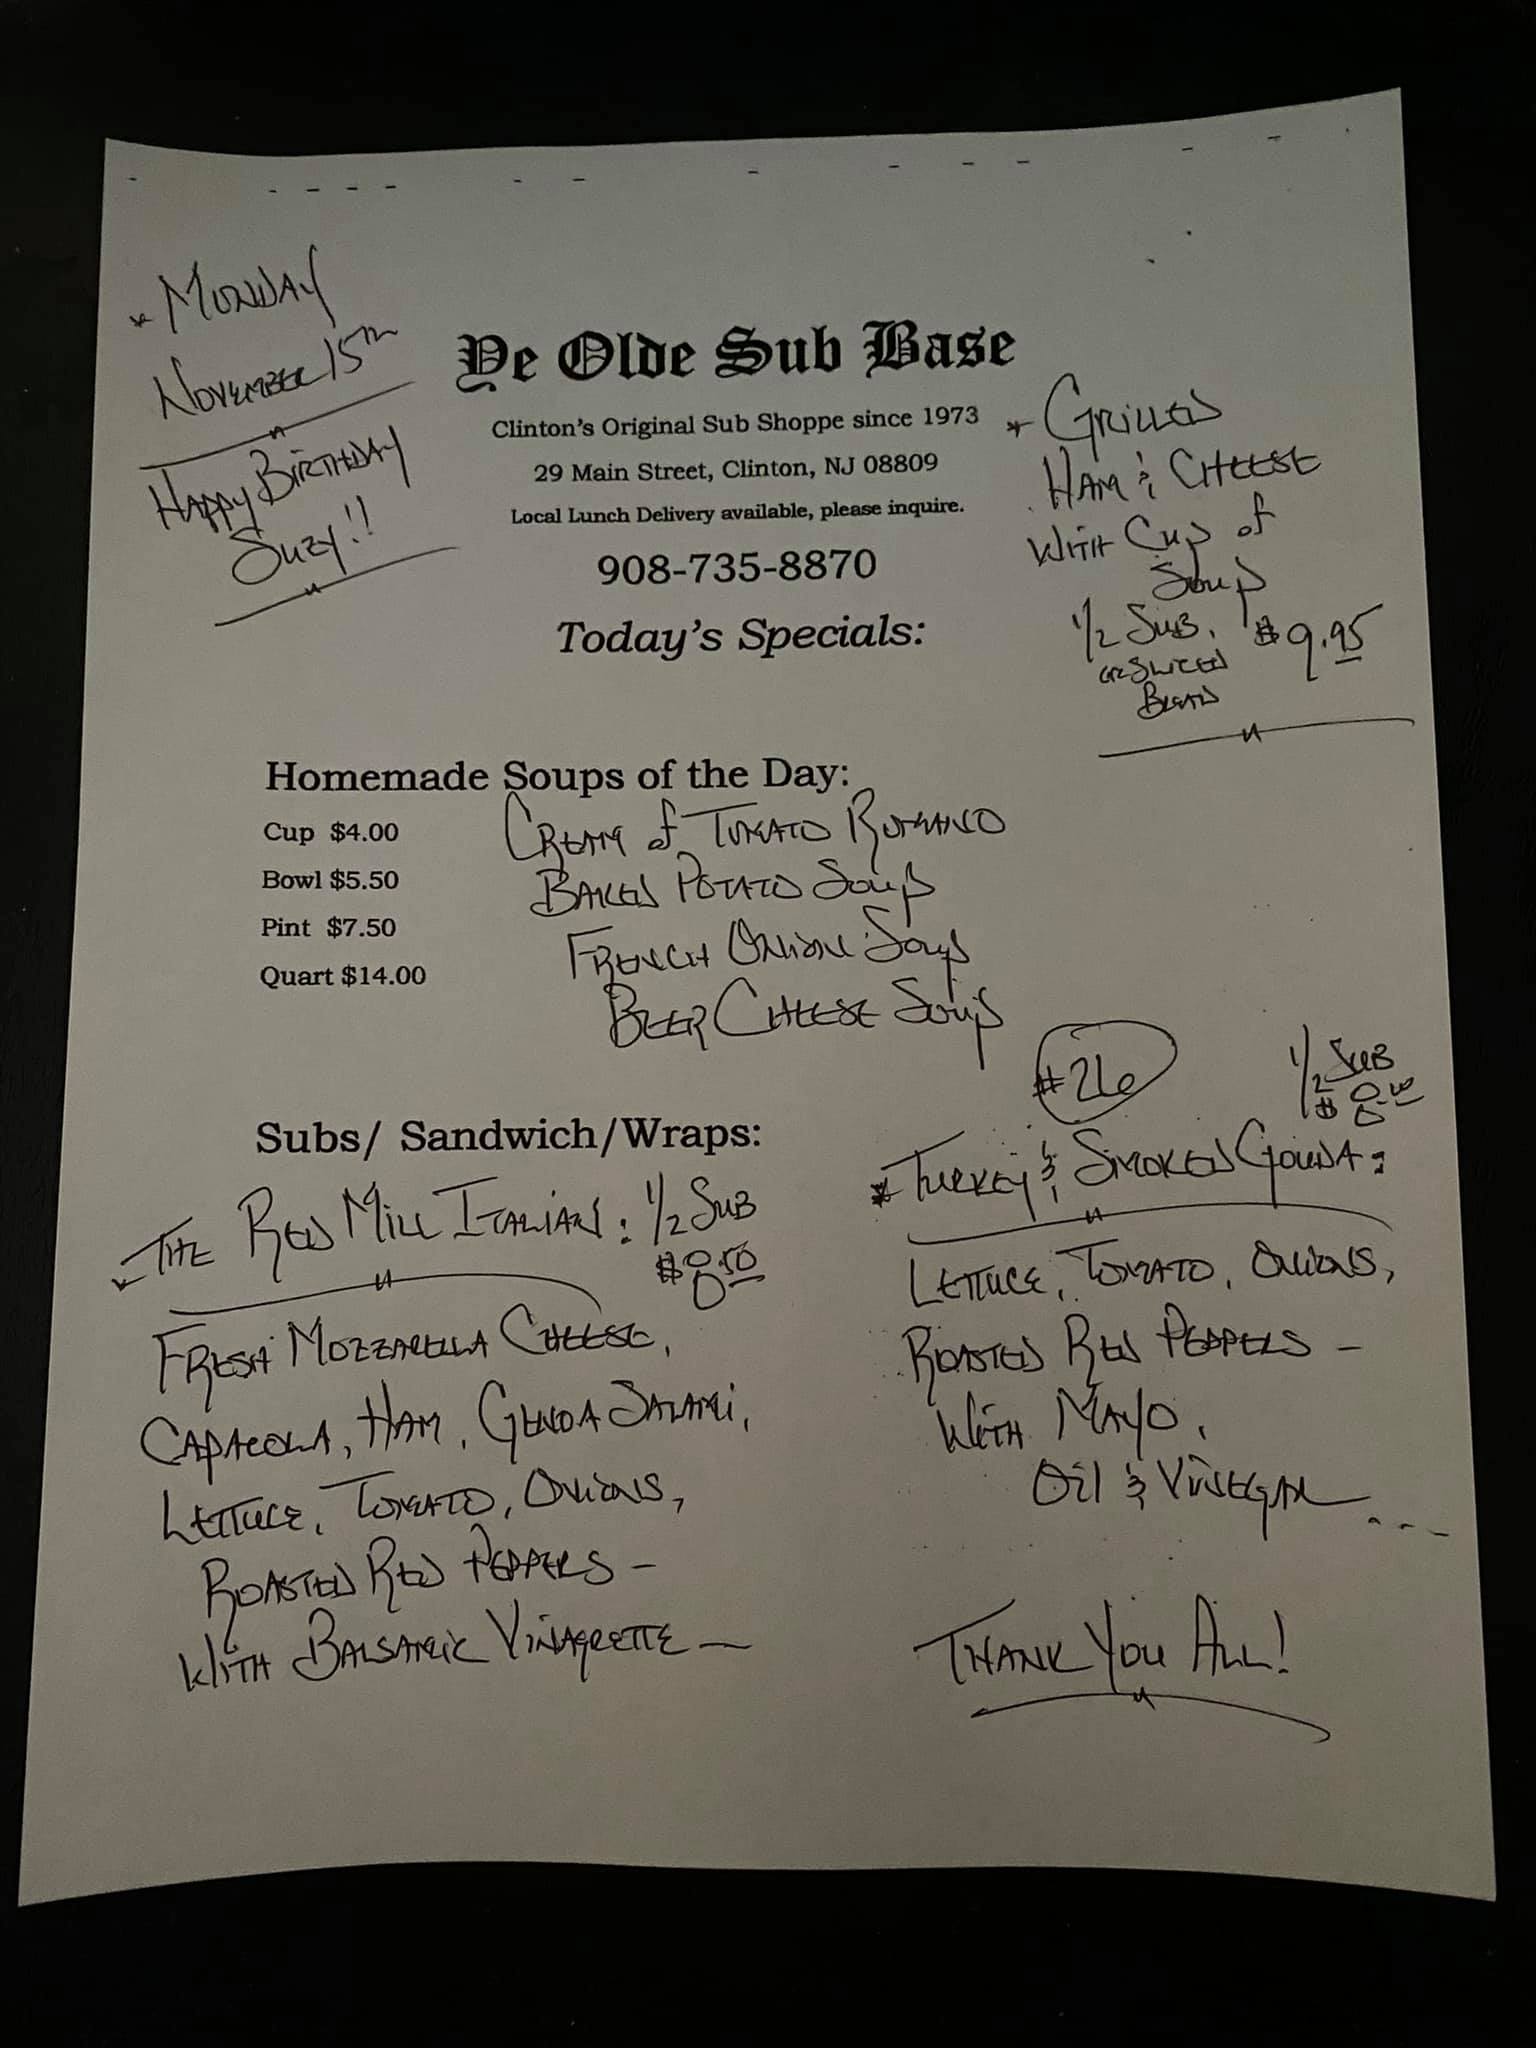 * MONDAY
NOVEMBER 15TH
HAPPY BIRTHDAY
SUZY!!
Ye Olde Sub Base
Clinton's Original Sub Shoppe since 1973
29 Main Street, Clinton, NJ 08809
Local Lunch Delivery available, please inquire.
908-735-8870
Today's Specials:
* GRILLED
HAM & CHEESE
WITH CUP of
SOUP
1/2 SUB, $9.95
OR SLICED
BREAD
Homemade Soups of the Day:
Cup $4.00
Bowl $5.50
Pint $7.50
Quart $14.00
CREAM of TOMATO ROMANO
BAKED POTATO SOUP
FRENCH ONION SOUP
BEER CHEESE SOUP
Subs/ Sandwich/Wraps:
* THE RED MILL ITALIAN: 1/2 SUB
$8.50
FRESH MOZZARELLA CHEESE,
CAPACOLA, HAM, GENOA SALAMI,
LETTUCE, TOMATO, ONIONS,
ROASTED RED PEPPERS -
WITH BALSAMIC VINAGRETTE -
#26
1/2 SUB
$8.00
* TURKEY & SMOKED GOUDA:
LETTUCE, TOMATO, ONIONS,
ROASTED RED PEPPERS -
WITH MAYO,
OIL & VINEGAR ...
THANK YOU ALL!